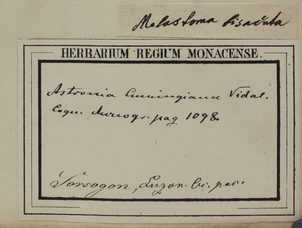 Melastoma bisaeuta
HERBARIUM REGIUM MONACENSE.
Astronia Cumingiana Vidal.
Cogn. Monogr. pag 1098.
Sorsogon, Luzon. Oc. pac.